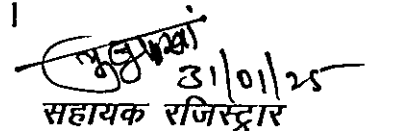 31/01/25
सहायक रजिस्ट्रार